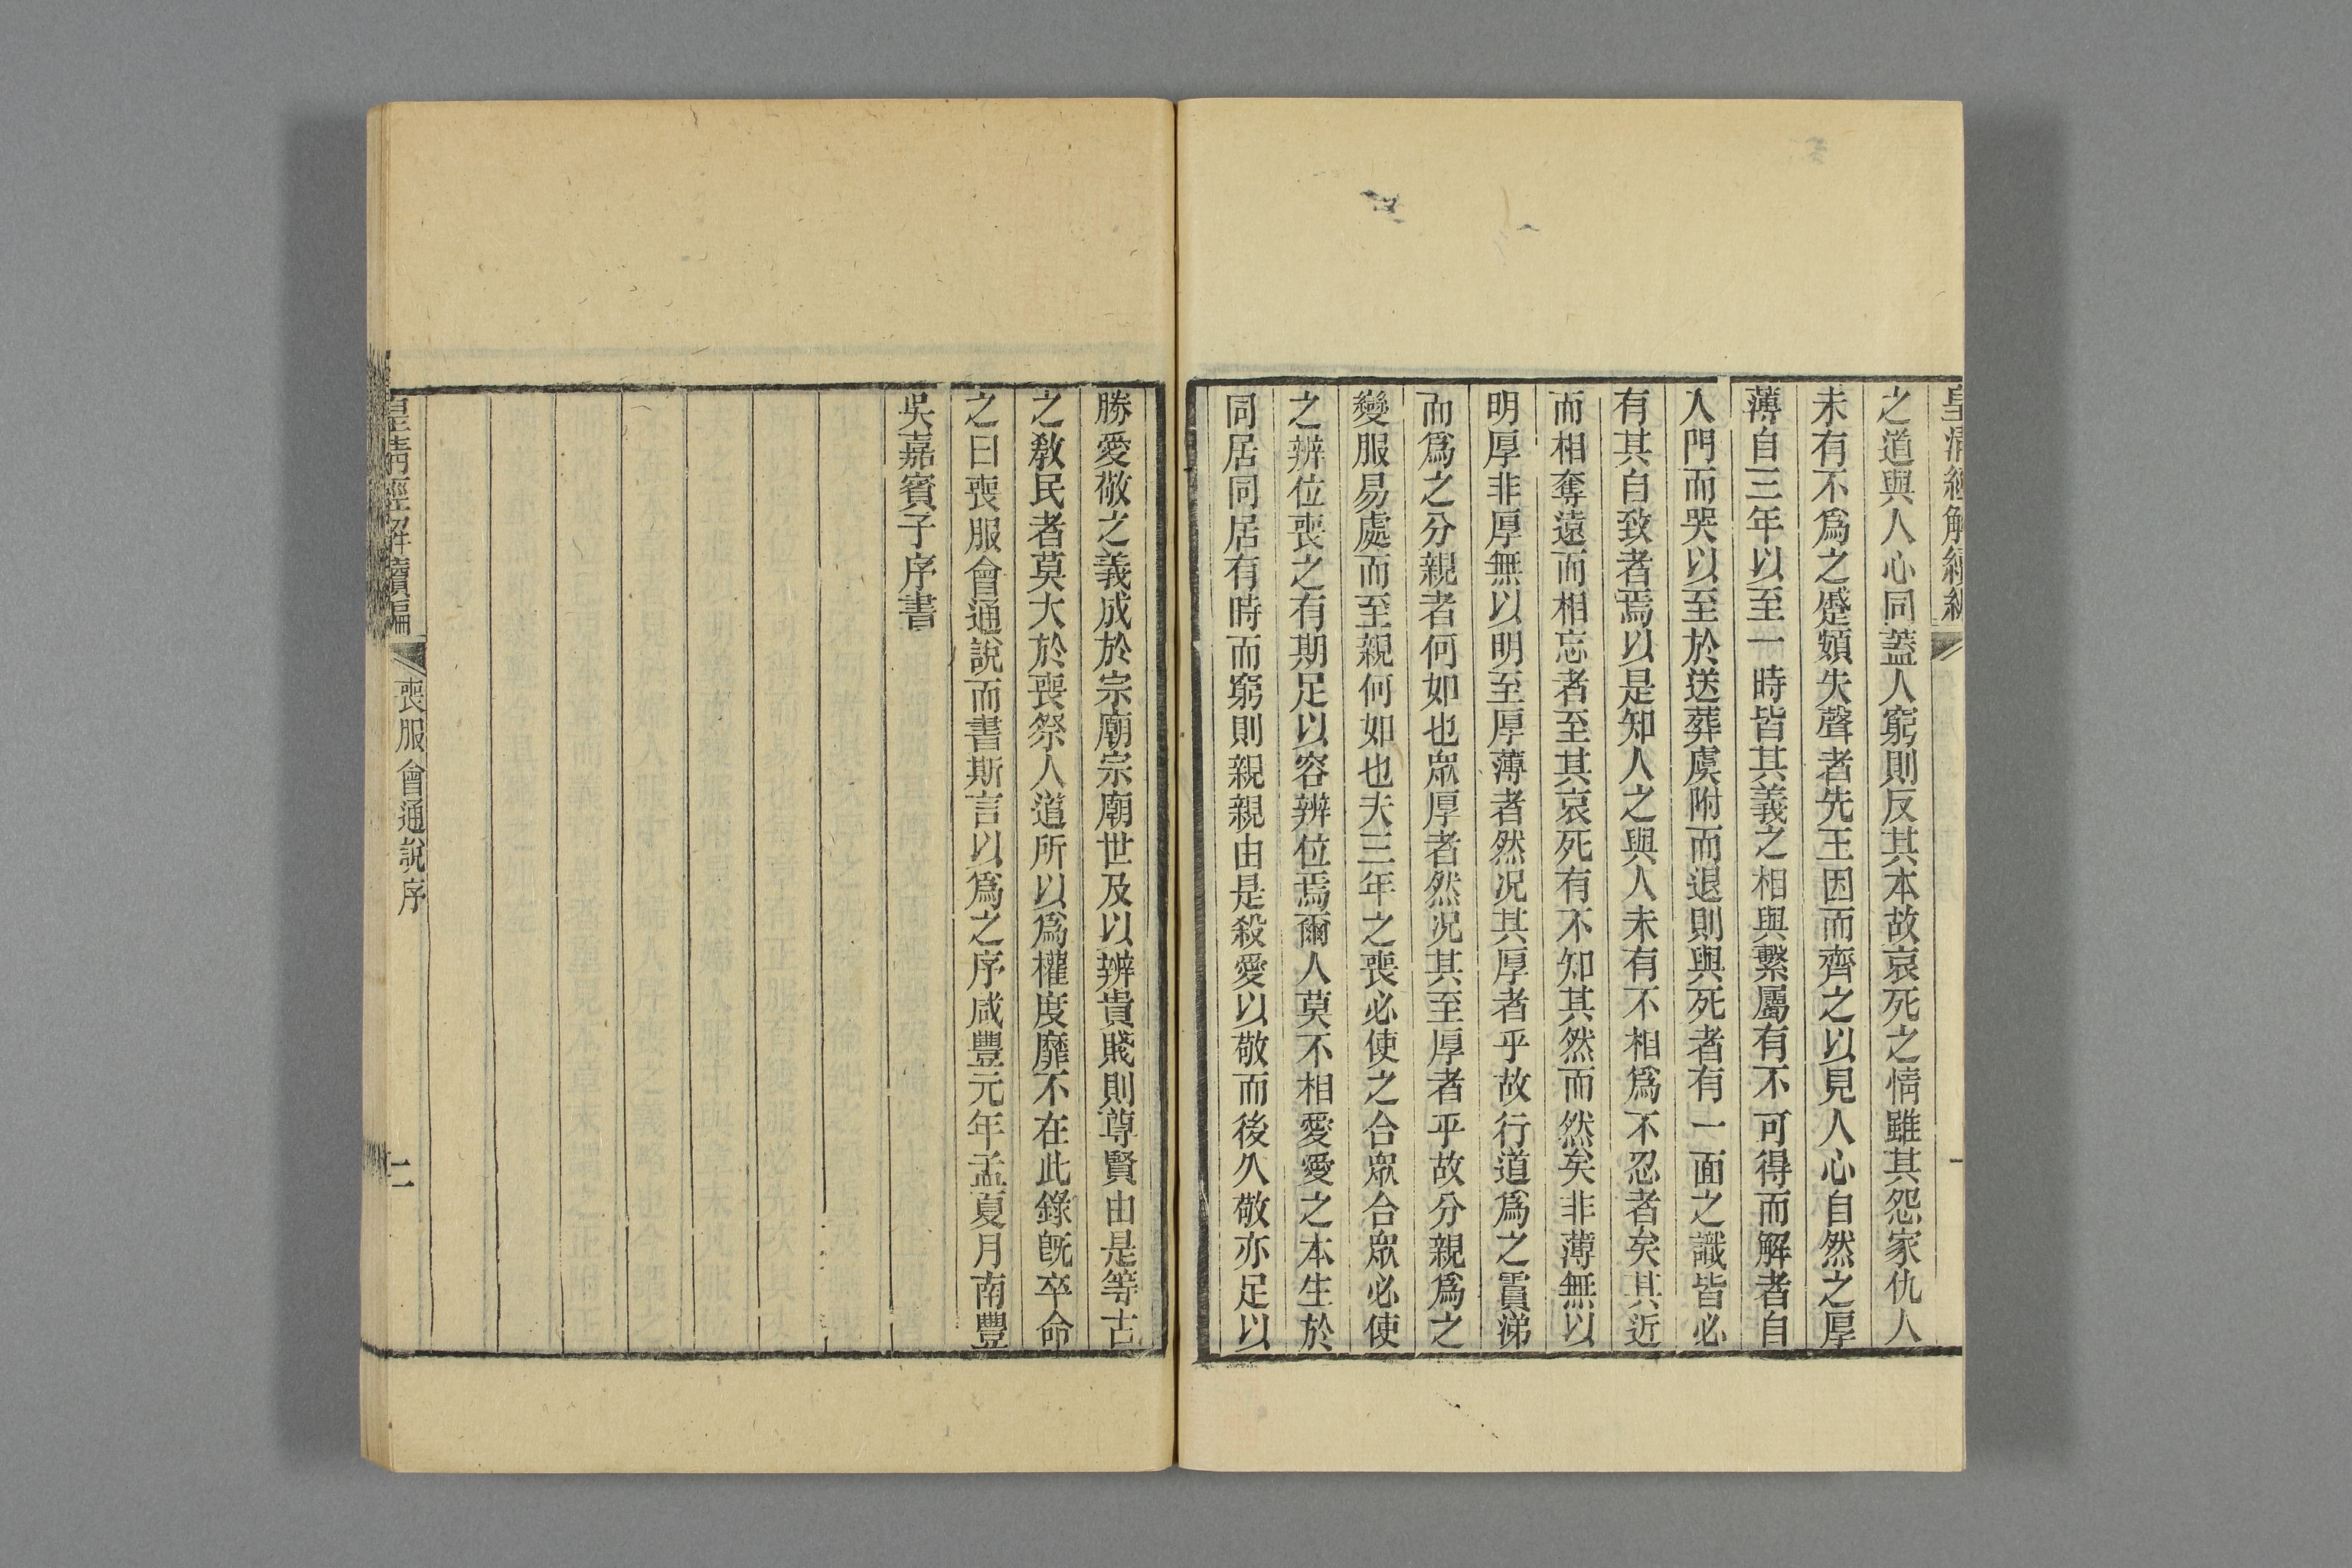 皇清經解續編
之道與人心同蓋人窮則反其本故哀死之情雖其怨家仇人
未有不爲之蹙頞失聲者先王因而齊之以見人心自然之厚
薄自三年以至一時皆其義之相與繫屬有不可得而解者自
入門而哭以至於送葬虞附而退則與死者有一面之識皆必
有其自致者焉以是知人之與人未有不相爲不忍者矣其近
而相奪遠而相忘者至其哀死有不知其然而然矣非薄無以
明厚非厚無以明至厚薄者然况其厚者乎故行道爲之霣涕
而爲之分親者何如也眾厚者然况其至厚者乎故分親爲之
變服易處而至親何如也夫三年之喪必使之合眾合眾必使
之辨位喪之有期足以容辨位焉爾人莫不相愛愛之本生於
同居同居有時而窮則親親由是殺愛以敬而後久敬亦足以
勝愛敬之義成於宗廟宗廟世及以辨貴賤則尊賢由是等古
之敎民者莫大於喪祭人道所以爲權度靡不在此錄旣卒命
之曰喪服會通說而書斯言以爲之序咸豐元年孟夏月南豐
吳嘉賓子序書
皇清經解續編
喪服會通說序
二